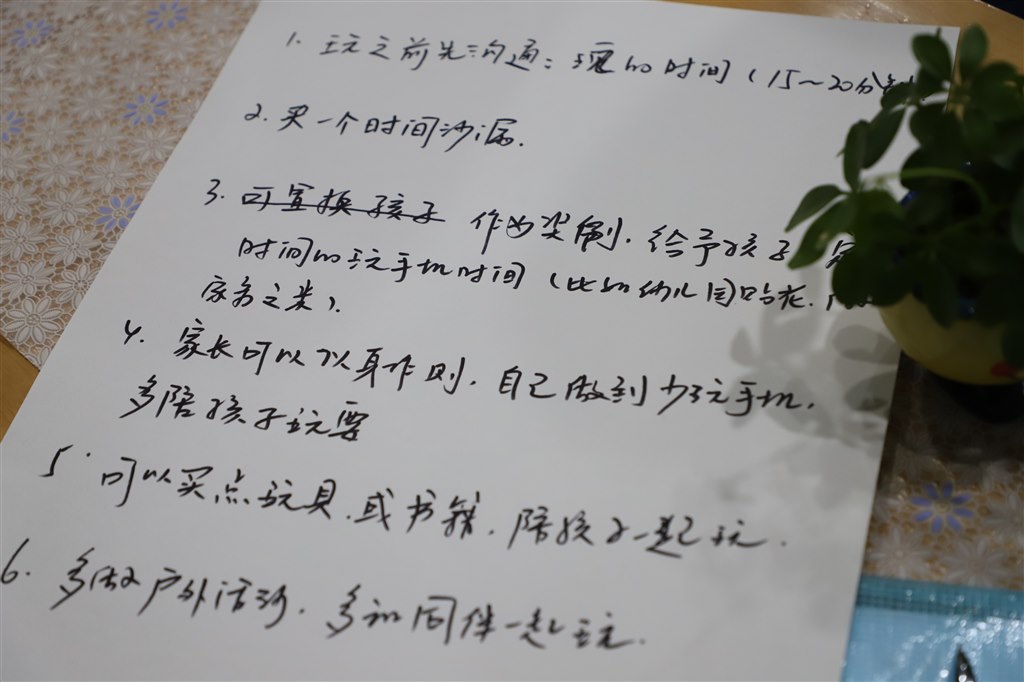 1. 玩之前先沟通：玩的时间（15～20分钟
2. 买一个时间沙漏.
3. 可置换孩子 作为奖励. 给予孩子
时间的玩手机时间（比如幼儿园贴花.
家务之类）.
4. 家长可以以身作则. 自己做到少玩手机.
多陪孩子玩耍
5. 可以买点玩具.或书籍. 陪孩子一起玩.
6. 多做户外活动. 多和同伴一起玩.